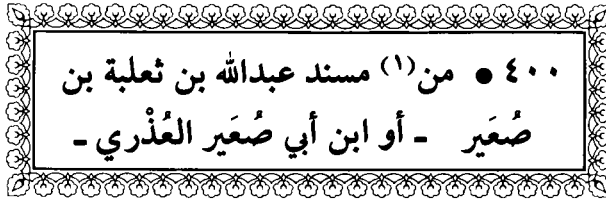 ٤٠٠ ● من(١) مسند عبدالله بن ثعلبة بن
صُعَير - أو ابن أبي صُعَير العُذْري -